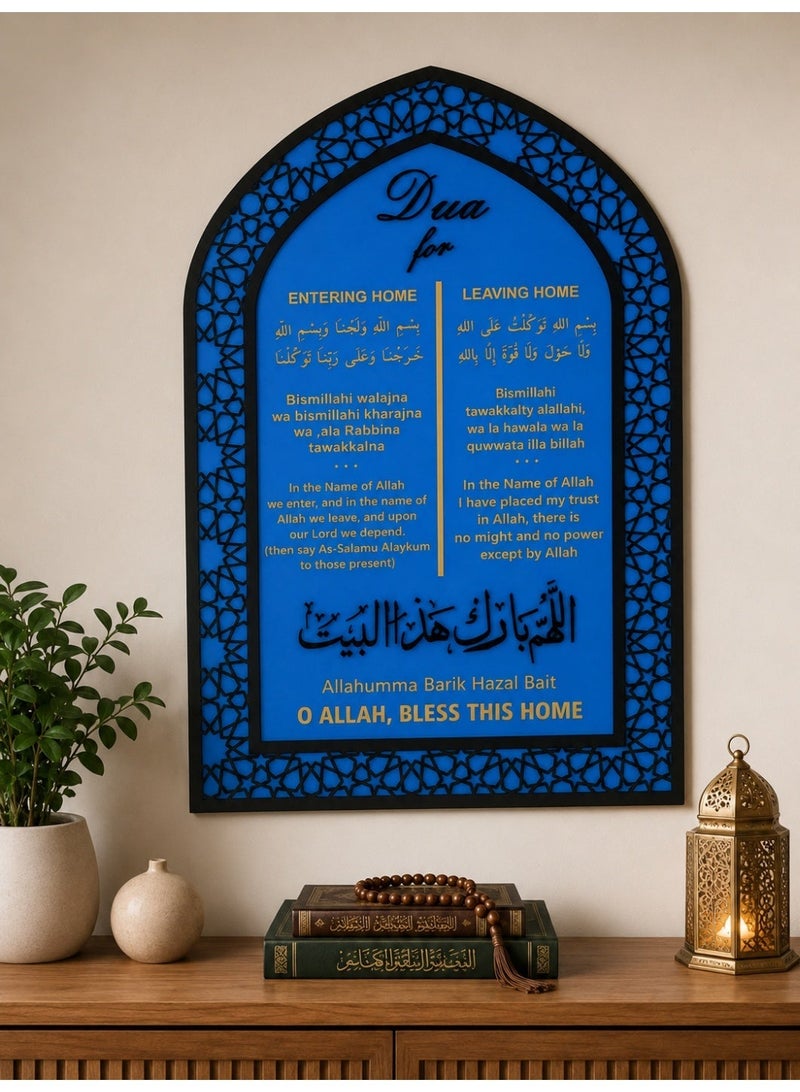 Dua
for
ENTERING HOME
بِسْمِ اللهِ وَلَجْنَا وَبِسْمِ اللهِ
خَرَجْنَا وَعَلَى رَبِّنَا تَوَكَّلْنَا
Bismillahi walajna
wa bismillahi kharajna
wa ,ala Rabbina
tawakkalna
In the Name of Allah
we enter, and in the name of
Allah we leave, and upon
our Lord we depend.
(then say As-Salamu Alaykum
to those present)
LEAVING HOME
بِسْمِ اللهِ تَوَكَّلْتُ عَلَى اللهِ
وَلَا حَوْلَ وَلَا قُوَّةَ إِلَّا بِاللهِ
Bismillahi
tawakkalty alallahi,
wa la hawala wa la
quwwata illa billah
In the Name of Allah
I have placed my trust
in Allah, there is
no might and no power
except by Allah
اللَّهُمَّ بَارِك هَذَا البَيتُ
Allahumma Barik Hazal Bait
O ALLAH, BLESS THIS HOME